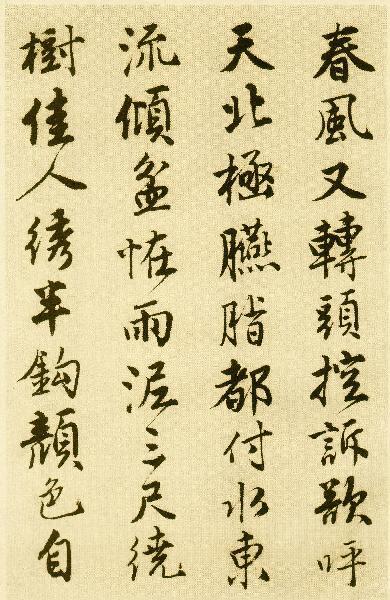 春風又轉頭控訴呼
天北極臙脂都付水東
流傾盆恠雨泥三尺繞
樹佳人綉半鈎顏色自